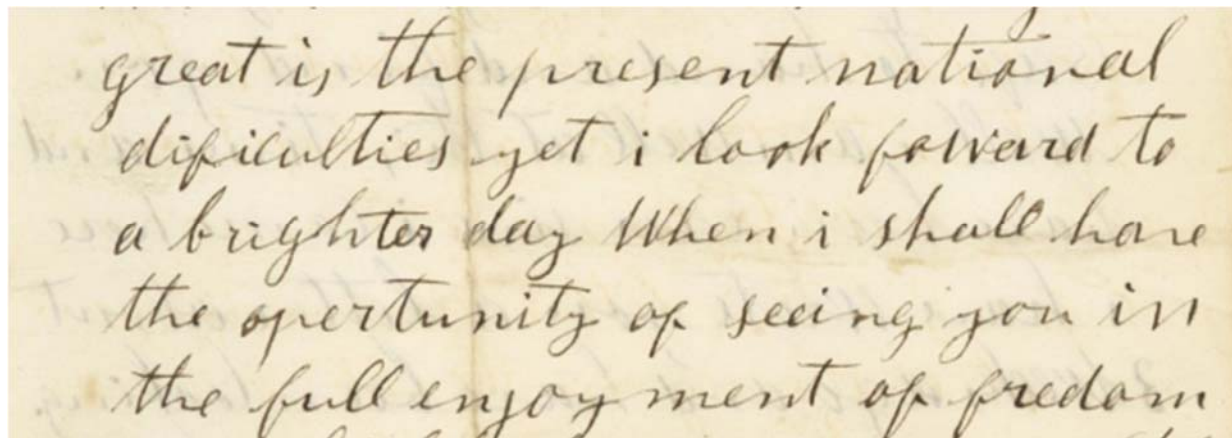 great is the present national
dificulties yet i look forward to
a brighter day When i shall have
the opertunity of seeing you in
the full enjoyment of fredom